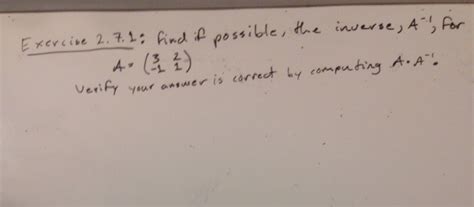 Exercise 2.7.1: find if possible, the inverse, A⁻¹, for
A = (3 2
-1 1)
Verify your answer is correct by computing A·A⁻¹.